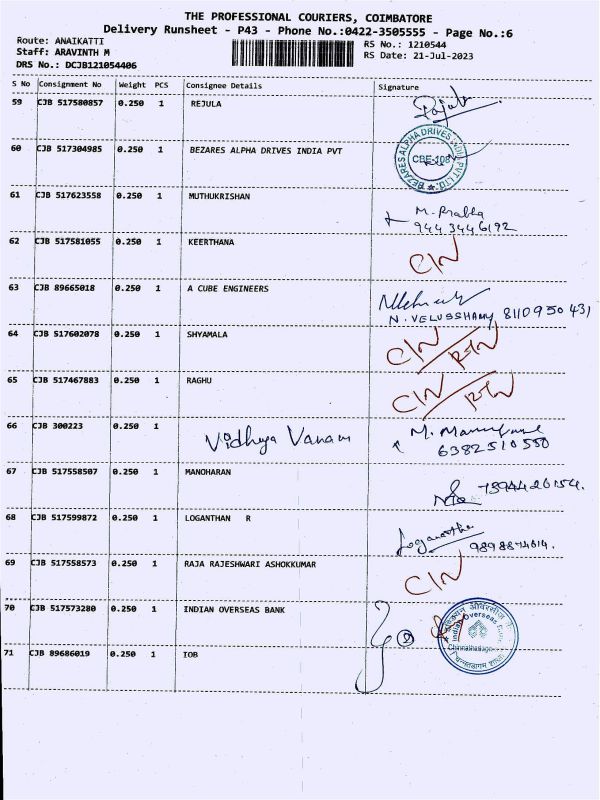 THE PROFESSIONAL COURIERS, COIMBATORE
Delivery Runsheet - P43 - Phone No.:0422-3505555 - Page No.:6
Route: ANAIKATTI
Staff: ARAVINTH M
DRS No.: DCJB121054406
RS No.: 1210544
RS Date: 21-Jul-2023
S No Consignment No Weight PCS Consignee Details Signature
59 CJB 517580857 0.250 1 REJULA Rajula
60 CJB 517304985 0.250 1 BEZARES ALPHA DRIVES INDIA PVT
BEZARES ALPHA DRIVES PVT LTD
CBE-108
61 CJB 517623558 0.250 1 MUTHUKRISHAN M. Prabha
9443446192
62 CJB 517581055 0.250 1 KEERTHANA CIN
63 CJB 89665018 0.250 1 A CUBE ENGINEERS
N. VELUSSHAMY 8110950431
64 CJB 517602078 0.250 1 SHYAMALA CIN
65 CJB 517467883 0.250 1 RAGHU CIN
66 CJB 300223 0.250 1 Vidhya Vanam M.
6382510550
67 CJB 517558507 0.250 1 MANOHARAN
68 CJB 517599872 0.250 1 LOGANTHAN R Loganatha
9898874614.
69 CJB 517558573 0.250 1 RAJA RAJESHWARI ASHOKKUMAR CIN
70 CJB 517573280 0.250 1 INDIAN OVERSEAS BANK
Indian Overseas
71 CJB 89686019 0.250 1 IOB